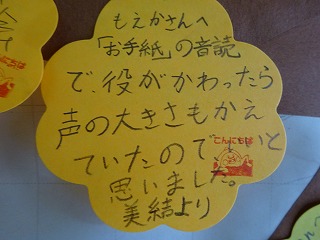 もえかさんへ
「お手紙」の音読
で、役がかわったら
声の大きさもかえ
ていたので いと
思いました。
美結より
こんにちは